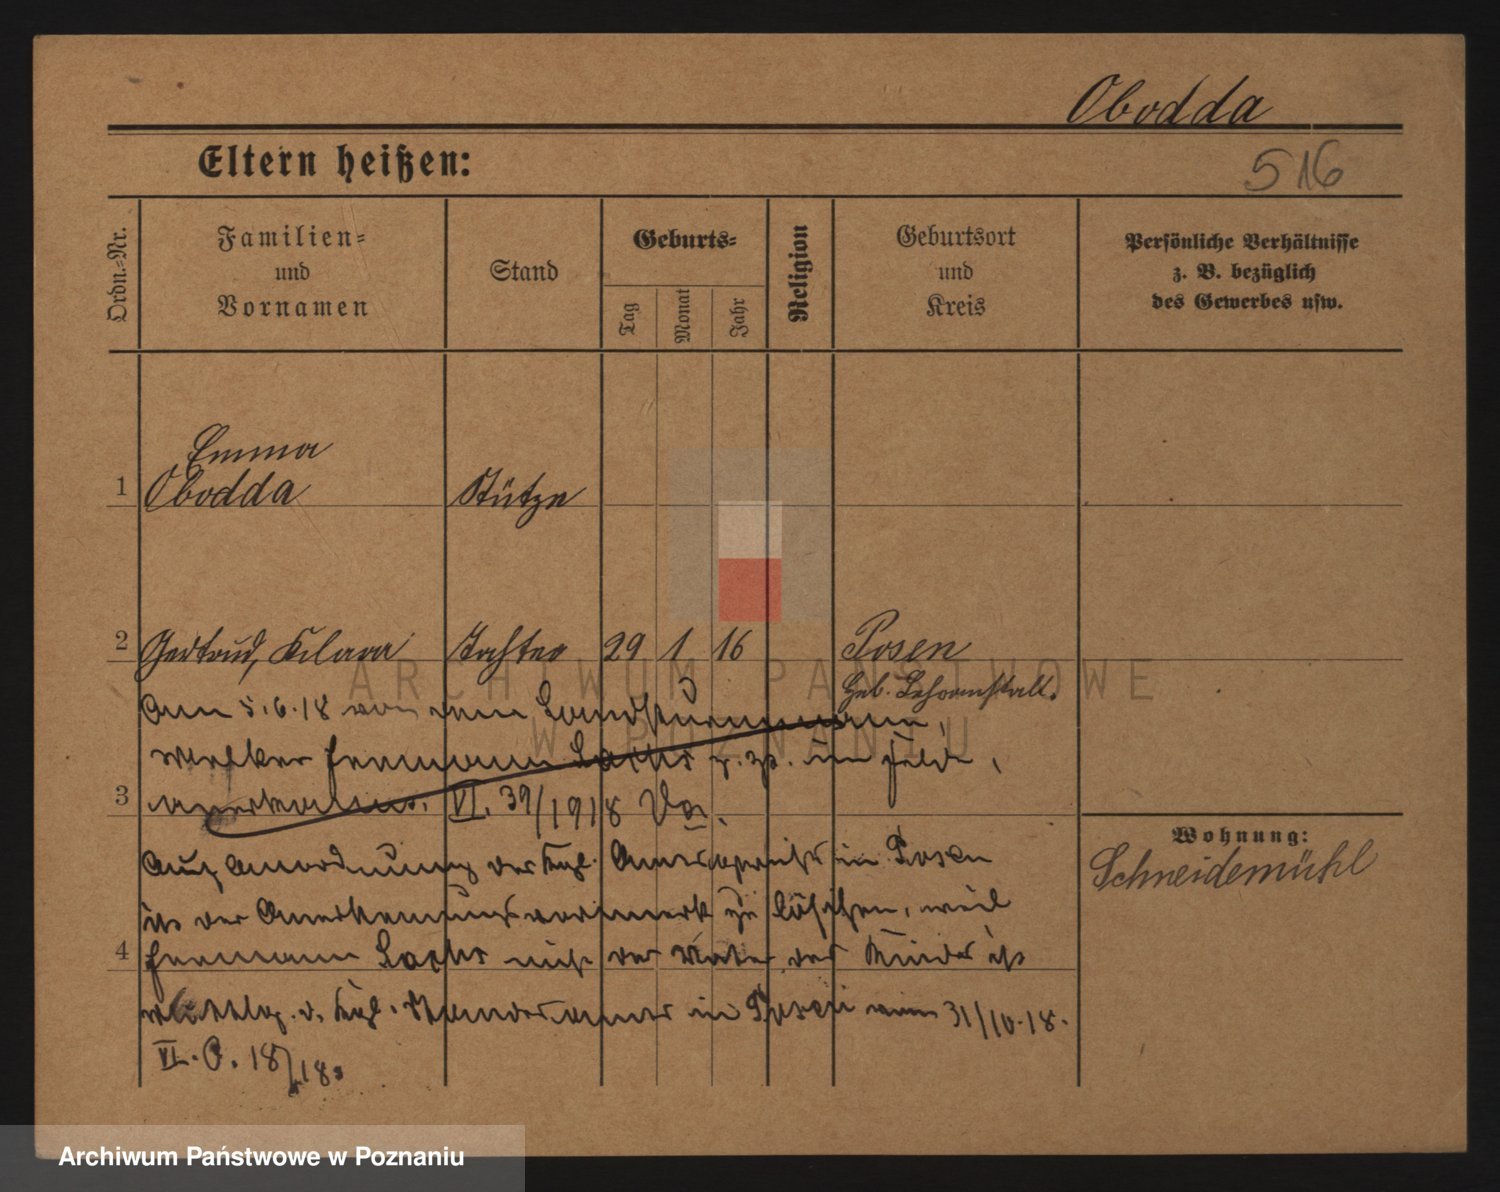 Obodda
Eltern heißen:
516
Ordn.-Nr.
Familien-
und
Vornamen
Stand
Geburts-
Tag
Monat
Jahr
Religion
Geburtsort
und
Kreis
Persönliche Verhältnisse
z. B. bezüglich
des Gewerbes usw.
Emma
1 Obodda Stütze
2 Gertrud, Klara Tochter 29 1 16 Posen
Geb. Hebammenstalt.
Am 5.6.18 von dem Landsturmmann,
Hermann Sachs z. Zt. im Felde,
3 anerkannt. VI. 39/1918
Wohnung:
Schneidemühl
Auf Anordnung des Kgl. Amtsgerichts in Posen
ist der Anerkennungsvermerk zu löschen, weil
4 Hermann Sachs nicht der Vater des Kindes ist
d. Kgl. Standesamts in Posen vom 31/10.18.
VI. 18/18.
ARCHIWUM PAŃSTWOWE
W POZNANIU
Archiwum Państwowe w Poznaniu